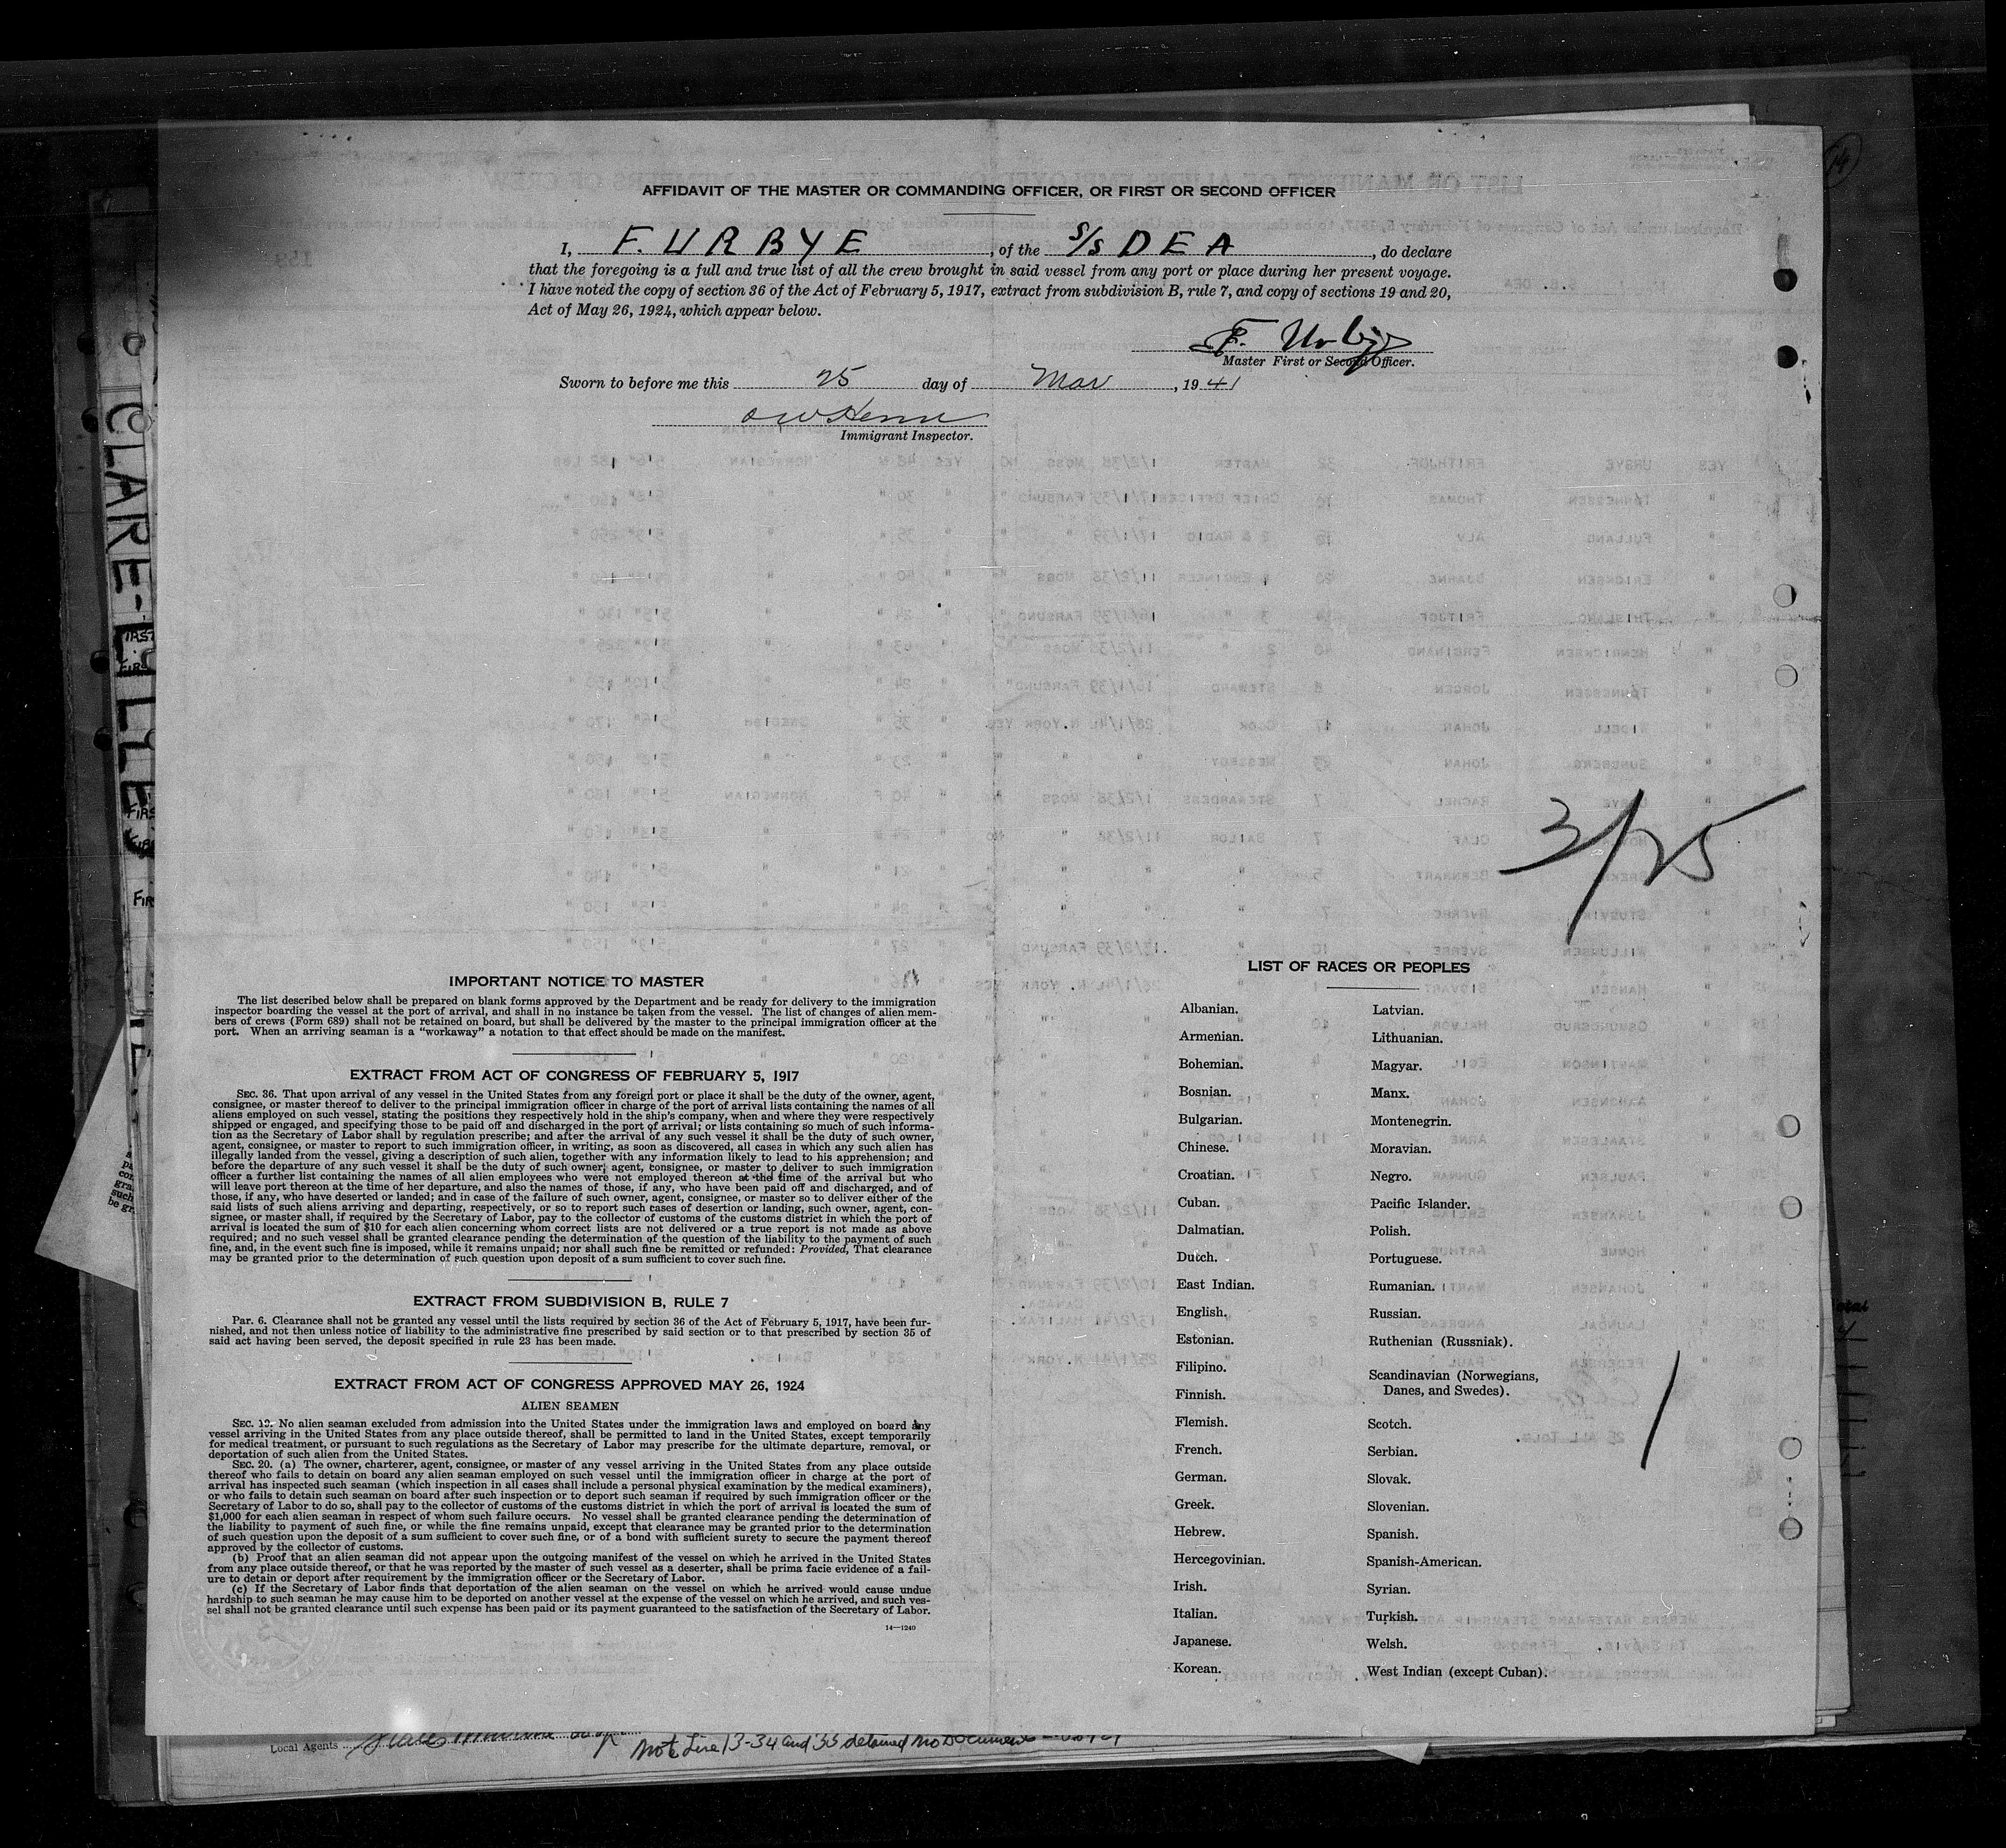 AFFIDAVIT OF THE MASTER OR COMMANDING OFFICER, OR FIRST OR SECOND OFFICER
I, F. URBYE, of the S/S DEA, do declare
that the foregoing is a full and true list of all the crew brought in said vessel from any port or place during her present voyage.
I have noted the copy of section 36 of the Act of February 5, 1917, extract from subdivision B, rule 7, and copy of sections 19 and 20,
Act of May 26, 1924, which appear below.
F. Urbye
Master First or Second Officer.
Sworn to before me this 25 day of Mar, 1941
Immigrant Inspector.
3/25
IMPORTANT NOTICE TO MASTER
The list described below shall be prepared on blank forms approved by the Department and be ready for delivery to the immigration
inspector boarding the vessel at the port of arrival, and shall in no instance be taken from the vessel. The list of changes of alien mem-
bers of crews (Form 689) shall not be retained on board, but shall be delivered by the master to the principal immigration officer at the
port. When an arriving seaman is a "workaway" a notation to that effect should be made on the manifest.
EXTRACT FROM ACT OF CONGRESS OF FEBRUARY 5, 1917
SEC. 36. That upon arrival of any vessel in the United States from any foreign port or place it shall be the duty of the owner, agent,
consignee, or master thereof to deliver to the principal immigration officer in charge of the port of arrival lists containing the names of all
aliens employed on such vessel, stating the positions they respectively hold in the ship's company, when and where they were respectively
shipped or engaged, and specifying those to be paid off and discharged in the port of arrival; or lists containing so much of such informa-
tion as the Secretary of Labor shall by regulation prescribe; and after the arrival of any such vessel it shall be the duty of such owner,
agent, consignee, or master to report to such immigration officer, in writing, as soon as discovered, all cases in which any such alien has
illegally landed from the vessel, giving a description of such alien, together with any information likely to lead to his apprehension; and
before the departure of any such vessel it shall be the duty of such owner, agent, consignee, or master to deliver to such immigration
officer a further list containing the names of all alien employees who were not employed thereon at the time of the arrival but who
will leave port thereon at the time of her departure, and also the names of those, if any, who have been paid off and discharged, and of
those, if any, who have deserted or landed; and in case of the failure of such owner, agent, consignee, or master so to deliver either of the
said lists of such aliens arriving and departing, respectively, or so to report such cases of desertion or landing, such owner, agent, con-
signee, or master shall, if required by the Secretary of Labor, pay to the collector of customs of the customs district in which the port of
arrival is located the sum of $10 for each alien concerning whom correct lists are not delivered or a true report is not made as above
required; and no such vessel shall be granted clearance pending the determination of the question of the liability to the payment of such
fine, and, in the event such fine is imposed, while it remains unpaid; nor shall such fine be remitted or refunded: Provided, That clearance
may be granted prior to the determination of such question upon deposit of a sum sufficient to cover such fine.
EXTRACT FROM SUBDIVISION B, RULE 7
Par. 6. Clearance shall not be granted any vessel until the lists required by section 36 of the Act of February 5, 1917, have been fur-
nished, and not then unless notice of liability to the administrative fine prescribed by said section or to that prescribed by section 35 of
said act having been served, the deposit specified in rule 23 has been made.
EXTRACT FROM ACT OF CONGRESS APPROVED MAY 26, 1924
ALIEN SEAMEN
SEC. 19. No alien seaman excluded from admission into the United States under the immigration laws and employed on board any
vessel arriving in the United States from any place outside thereof, shall be permitted to land in the United States, except temporarily
for medical treatment, or pursuant to such regulations as the Secretary of Labor may prescribe for the ultimate departure, removal, or
deportation of such alien from the United States.
SEC. 20. (a) The owner, charterer, agent, consignee, or master of any vessel arriving in the United States from any place outside
thereof who fails to detain on board any alien seaman employed on such vessel until the immigration officer in charge at the port of
arrival has inspected such seaman (which inspection in all cases shall include a personal physical examination by the medical examiners),
or who fails to detain such seaman on board after such inspection or to deport such seaman if required by such immigration officer or the
Secretary of Labor to do so, shall pay to the collector of customs of the customs district in which the port of arrival is located the sum of
$1,000 for each alien seaman in respect of whom such failure occurs. No vessel shall be granted clearance pending the determination of
the liability to payment of such fine, or while the fine remains unpaid, except that clearance may be granted prior to the determination
of such question upon the deposit of a sum sufficient to cover such fine, or of a bond with sufficient surety to secure the payment thereof
approved by the collector of customs.
(b) Proof that an alien seaman did not appear upon the outgoing manifest of the vessel on which he arrived in the United States
from any place outside thereof, or that he was reported by the master of such vessel as a deserter, shall be prima facie evidence of a fail-
ure to detain or deport after requirement by the immigration officer or the Secretary of Labor.
(c) If the Secretary of Labor finds that deportation of the alien seaman on the vessel on which he arrived would cause undue
hardship to such seaman he may cause him to be deported on another vessel at the expense of the vessel on which he arrived, and such ves-
sel shall not be granted clearance until such expense has been paid or its payment guaranteed to the satisfaction of the Secretary of Labor.
14—1240
LIST OF RACES OR PEOPLES
Albanian.
Armenian.
Bohemian.
Bosnian.
Bulgarian.
Chinese.
Croatian.
Cuban.
Dalmatian.
Dutch.
East Indian.
English.
Estonian.
Filipino.
Finnish.
Flemish.
French.
German.
Greek.
Hebrew.
Hercegovinian.
Irish.
Italian.
Japanese.
Korean.
Latvian.
Lithuanian.
Magyar.
Manx.
Montenegrin.
Moravian.
Negro.
Pacific Islander.
Polish.
Portuguese.
Rumanian.
Russian.
Ruthenian (Russniak).
Scandinavian (Norwegians,
Danes, and Swedes).
Scotch.
Serbian.
Slovak.
Slovenian.
Spanish.
Spanish-American.
Syrian.
Turkish.
Welsh.
West Indian (except Cuban).
Local Agents
Note Line 13-34 and 35 detained no Documents